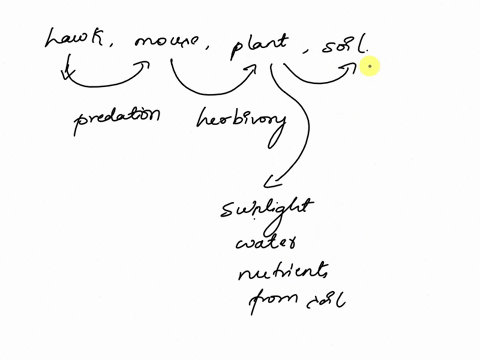 hawk, mouse, plant, soil.
predation herbivory
sunlight
water
nutrients
from soil